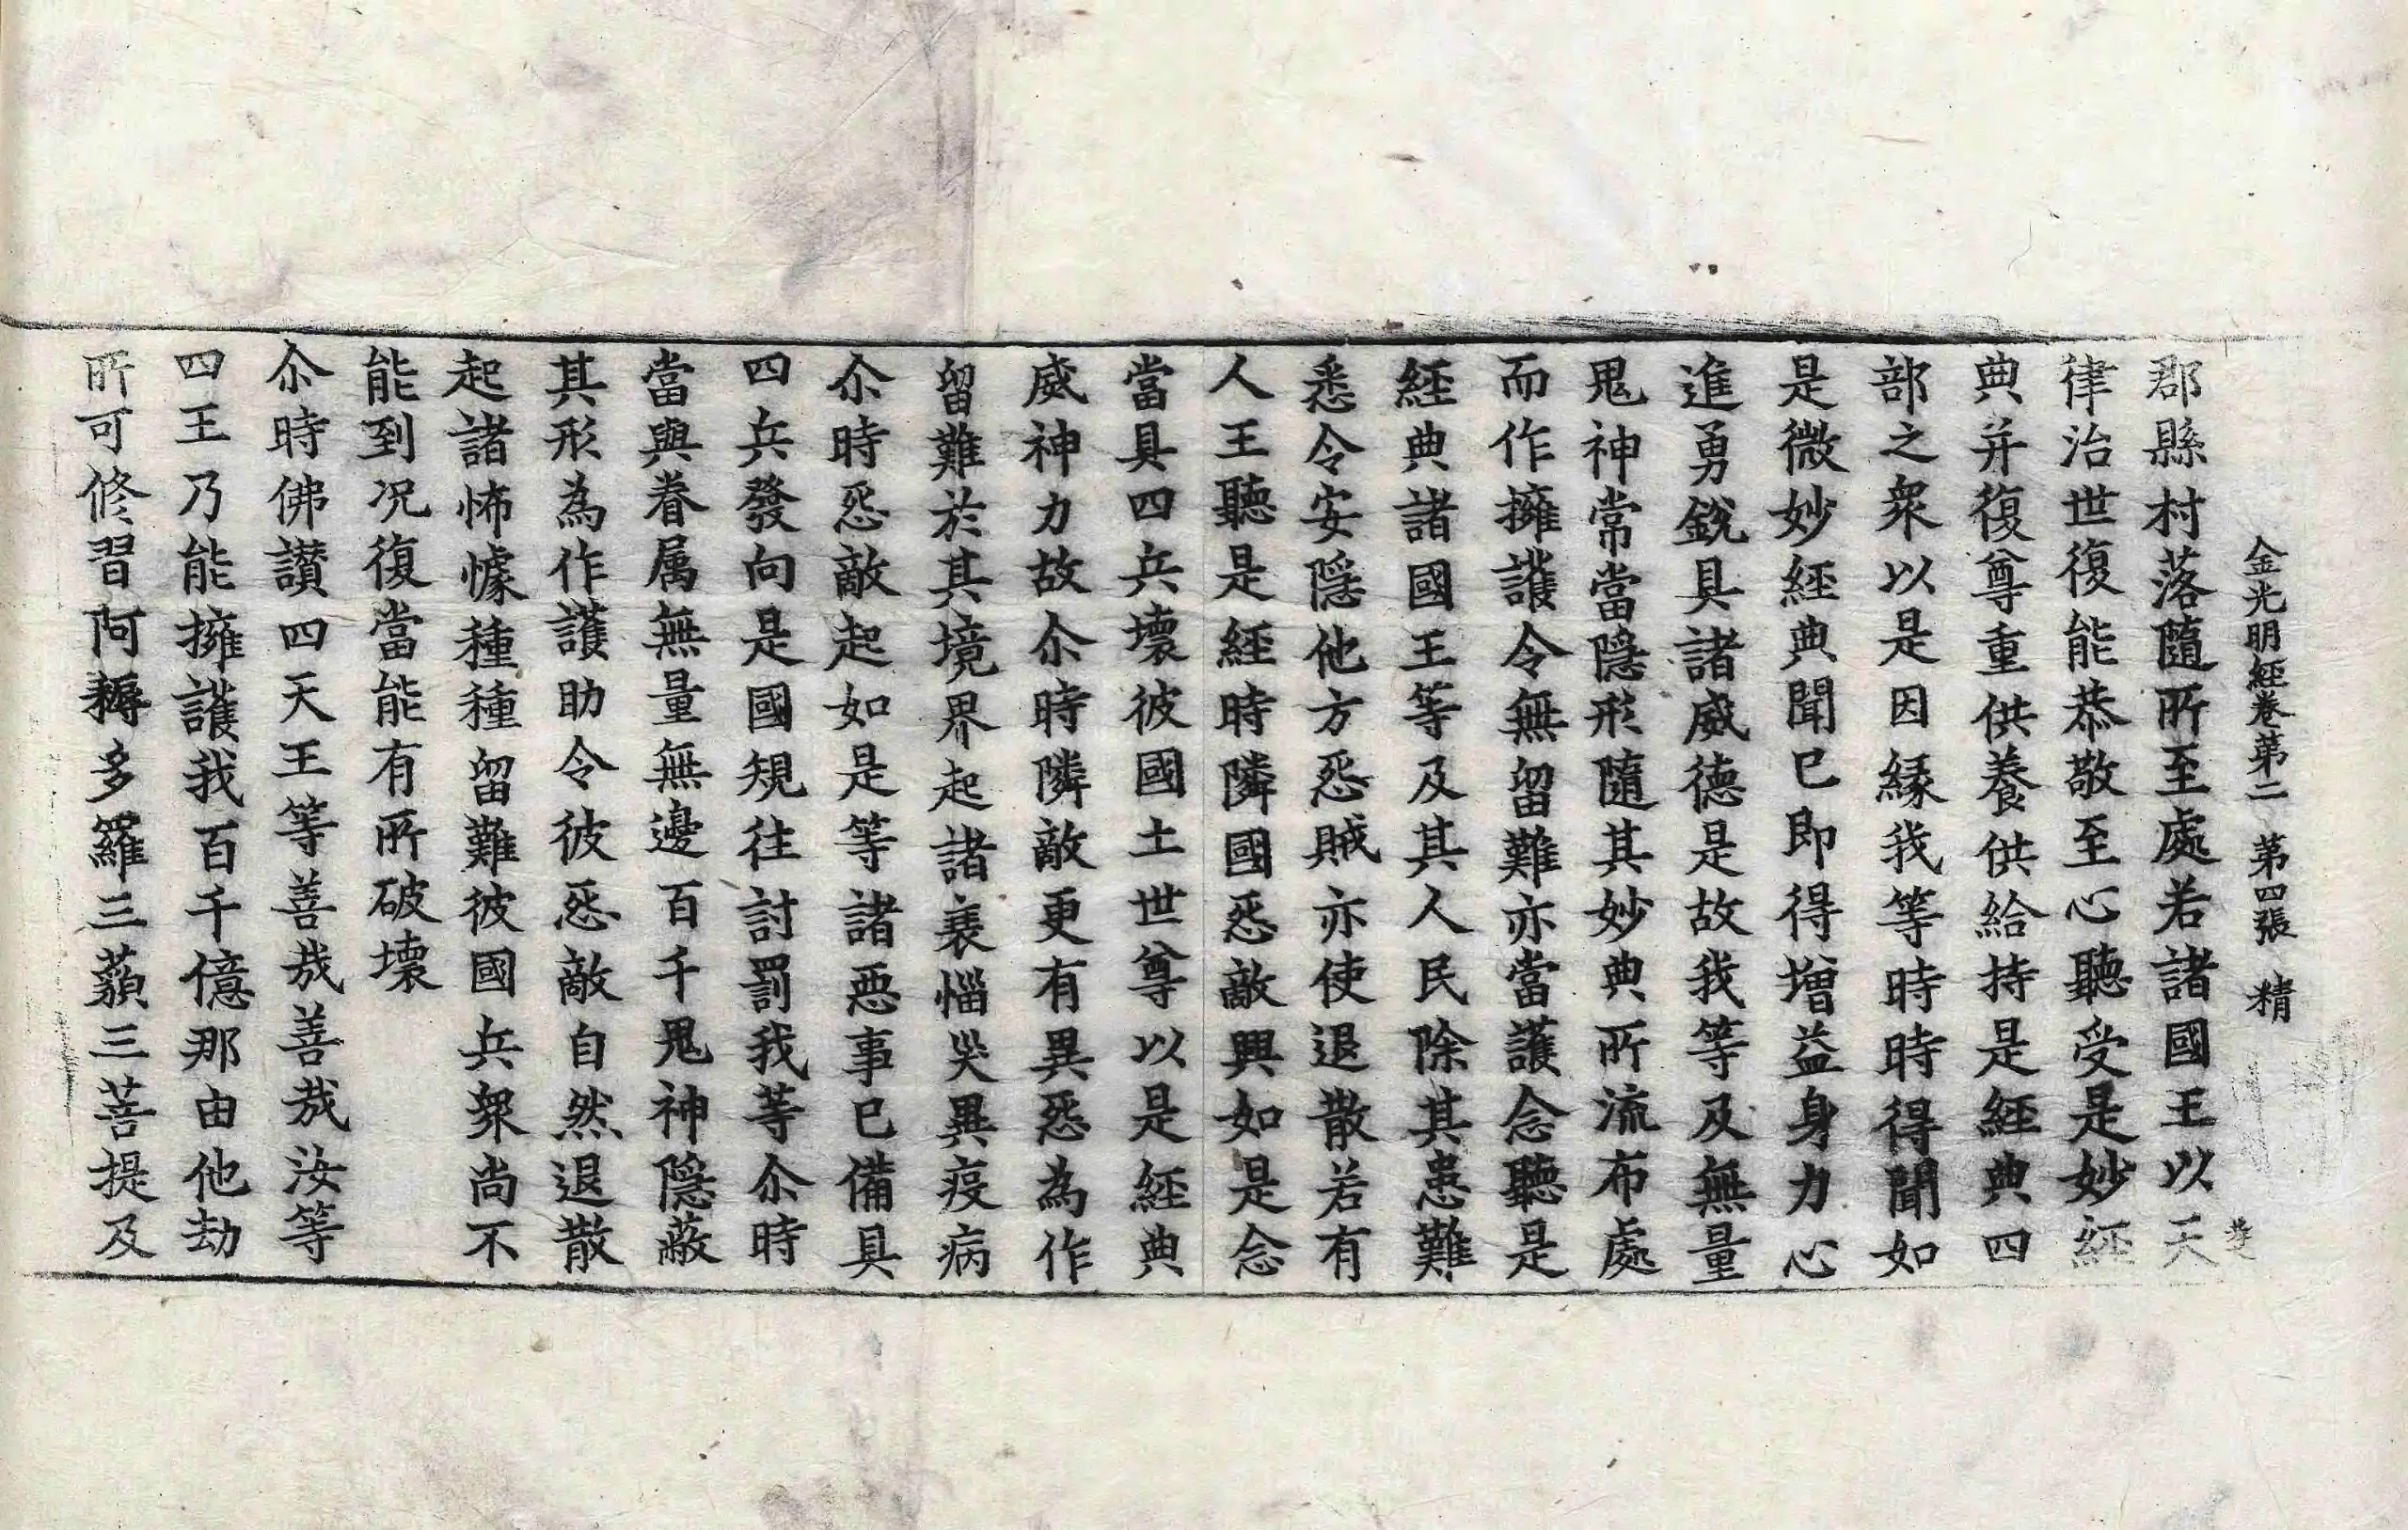 金光明經卷第二 第四張 精
郡縣村落隨所至處若諸國王以天
律治世復能恭敬至心聽受是妙經
典并復尊重供養供給持是經典四
部之衆以是因緣我等時時得聞如
是微妙經典聞已即得增益身力心
進勇銳具諸威德是故我等及無量
鬼神常當隱形隨其妙典所流布處
而作擁護令無留難亦當護念聽是
經典諸國王等及其人民除其患難
悉令安隱他方怨賊亦使退散若有
人王聽是經時隣國怨敵興如是念
當具四兵壞彼國土世尊以是經典
威神力故尒時隣敵更有異怨為作
留難於其境界起諸衰惱災異疫病
尒時怨敵起如是等諸惡事已備具
四兵發向是國規往討罰我等尒時
當與眷属無量無邊百千鬼神隱蔽
其形為作護助令彼怨敵自然退散
起諸怖懅種種留難彼國兵衆尚不
能到况復當能有所破壞
尒時佛讃四天王等善哉善哉汝等
四王乃能擁護我百千億那由他劫
所可修習阿耨多羅三藐三菩提及